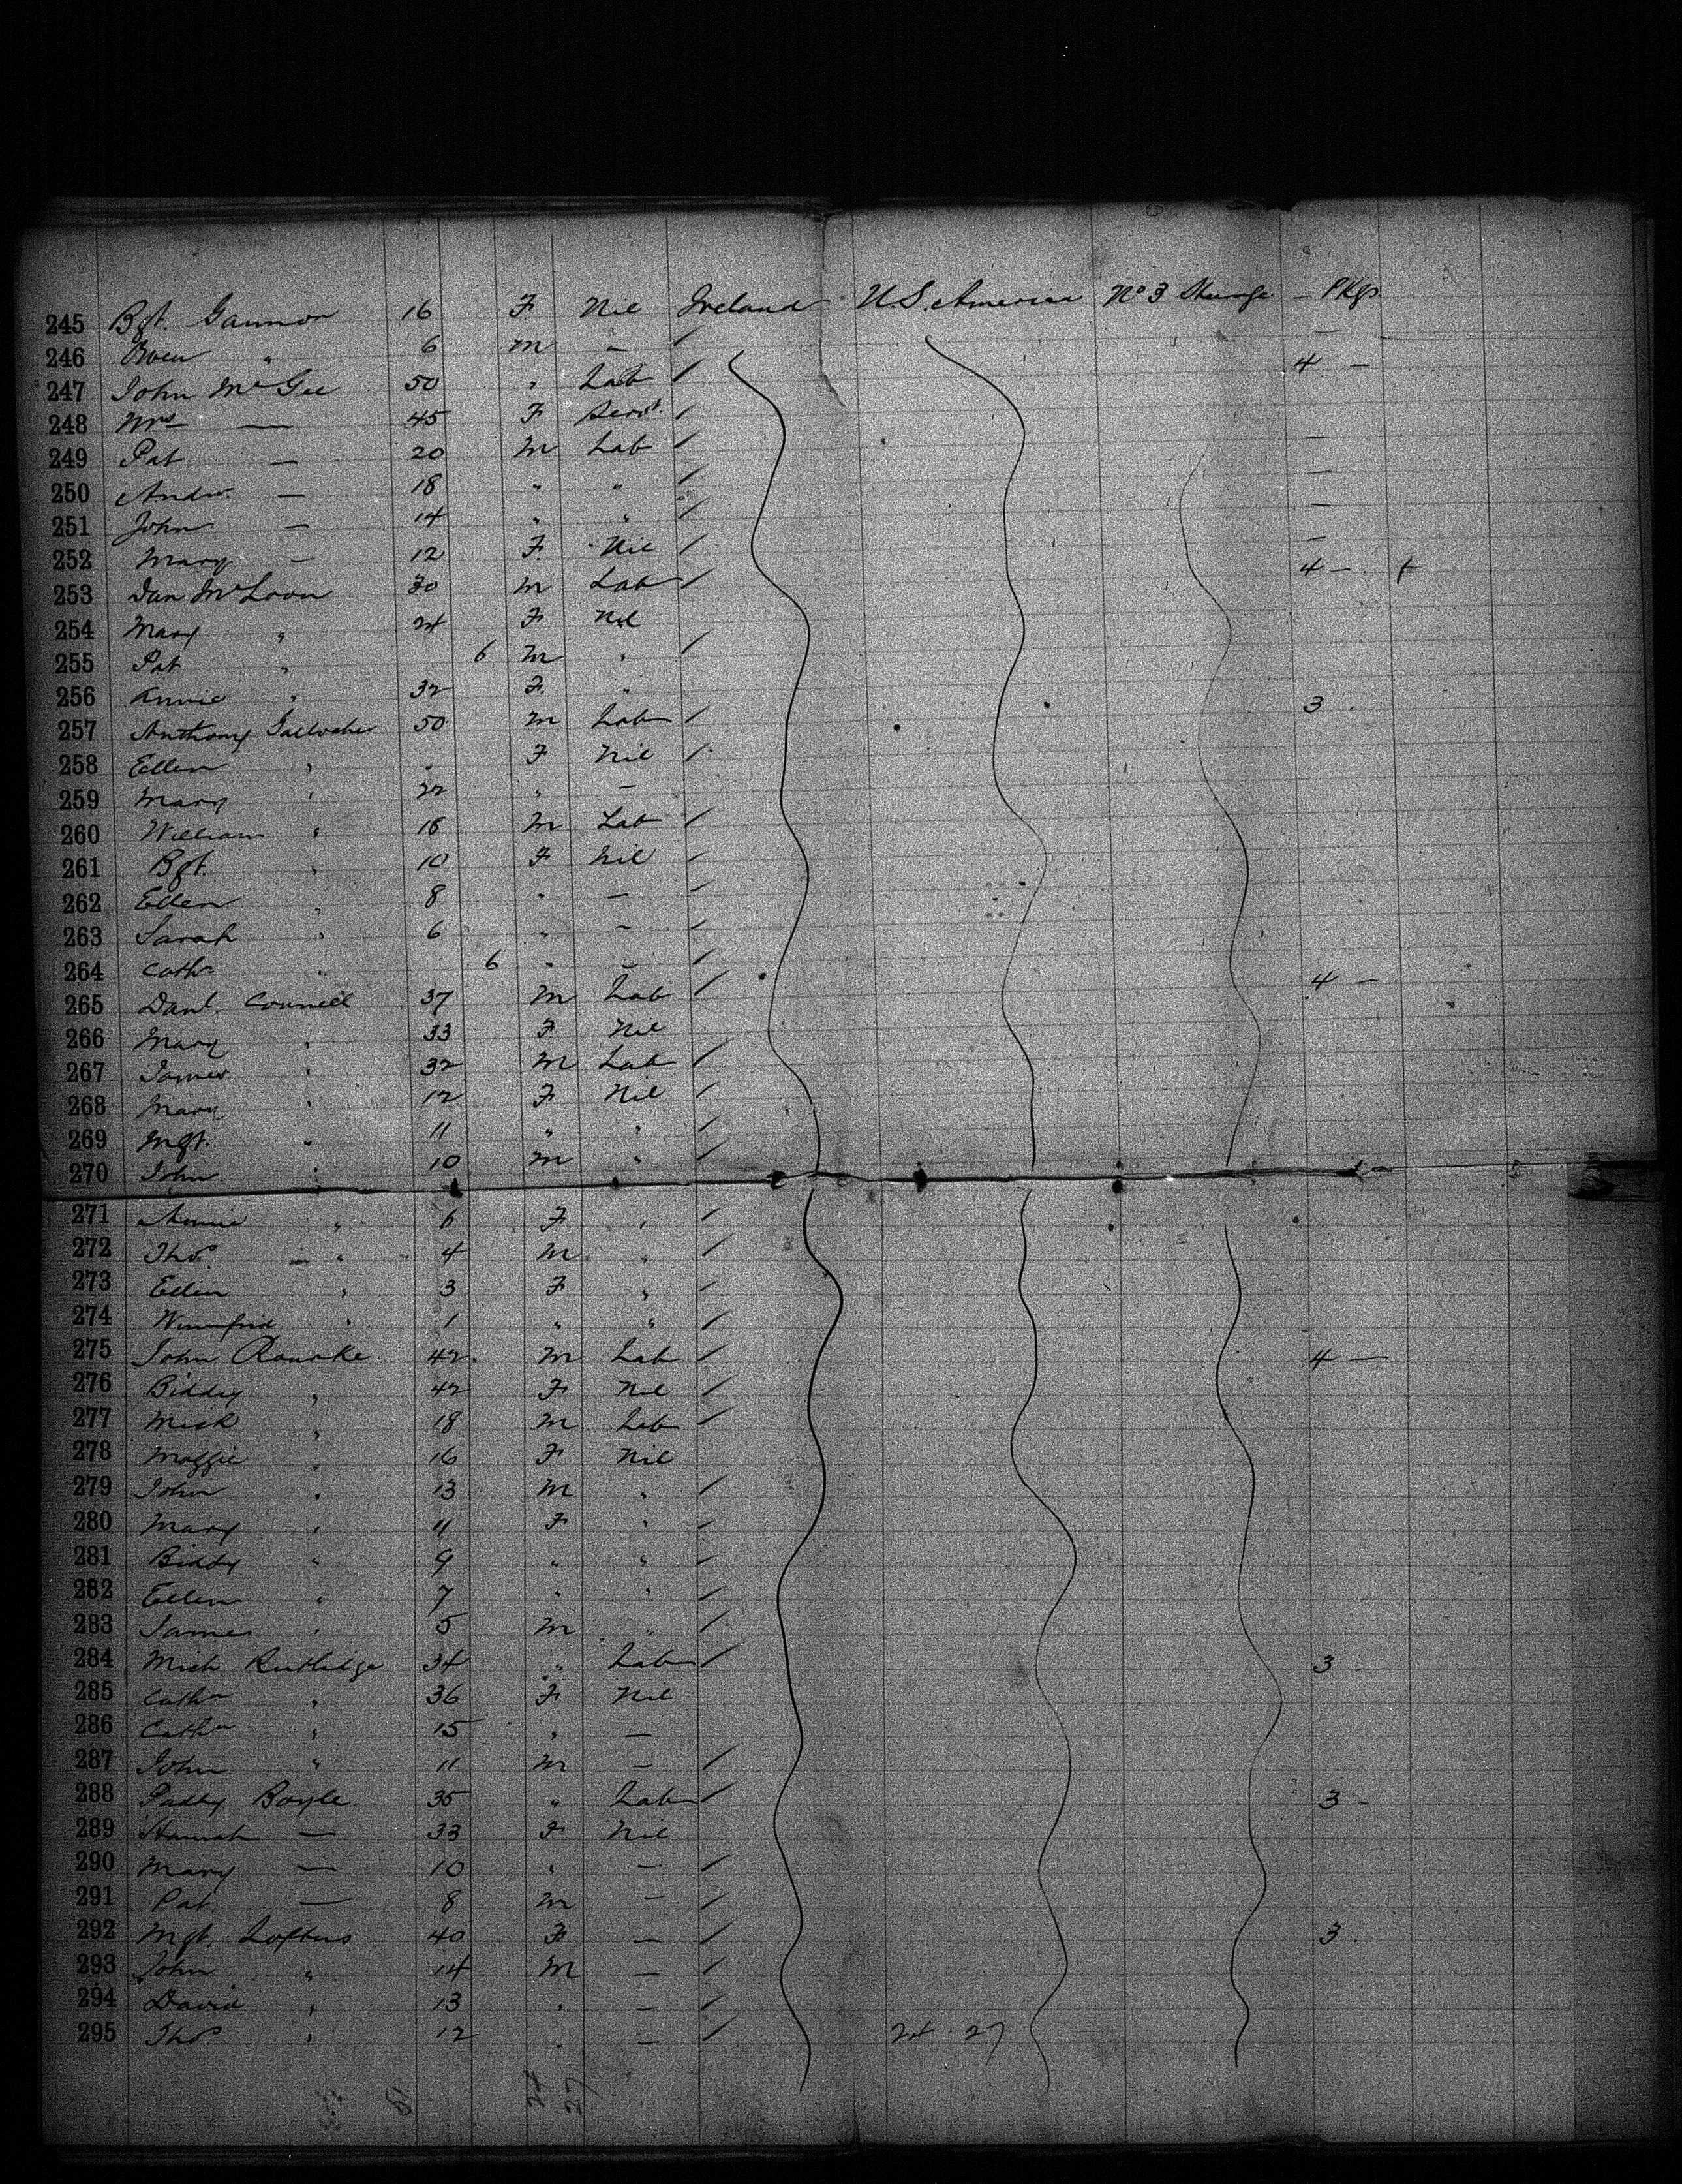 245 Bgt. Gannon 16 F Nil Ireland U.S. America No 3 Steerage — Pkgs
246 Owen " 6 M — /
247 John McGee 50 " Lab / 4 —
248 Mrs — 45 F Servt. /
249 Pat — 20 M Lab / —
250 Andw. — 18 " " / —
251 John — 14 " " / —
252 Mary — 12 F. Nil / —
253 Dan McLoon 30 M Lab / 4 —
254 Mary " 24 F Nil
255 Pat " 6 M " /
256 Annie " 32 F. "
257 Anthony Gallocher 50 M Lab / 3
258 Ellen " " F Nil /
259 Mary " 22 " —
260 William " 18 M Lab /
261 Bgt. " 10 F Nil /
262 Ellen " 8 " — /
263 Sarah " 6 " — /
264 Cathn " 6 " — /
265 Danl. Connell 37 M Lab / 4 —
266 Mary " 33 F Nil
267 James " 32 M Lab /
268 Mary " 12 F Nil /
269 Mgt. " 11 " " /
270 John " 10 M " /
271 Annie " 6 F " /
272 Thos. " 4 M " /
273 Ellen " 3 F " /
274 Winnifred " 1 " " /
275 John Rourke 42. M Lab / 4 —
276 Biddy " 42 F Nil /
277 Mick " 18 M Lab /
278 Maggie " 16 F Nil
279 John " 13 M " /
280 Mary " 11 F " /
281 Biddy " 9 " " /
282 Ellen " 7 " " /
283 James " 5 M " /
284 Mich Rutlidge 34 " Lab / 3
285 Cathn " 36 F Nil
286 Cathn " 15 " —
287 John " 11 M — /
288 Paddy Boyle 35 " Lab / 3 -
289 Hannah — 33 F Nil
290 Mary — 10 " — /
291 Pat. — 8 M — /
292 Mgt. Loftus 40 F — / 3.
293 John " 14 M — /
294 David " 13 " — /
295 Thos " 12 " — / 24 . 27
51 24 27